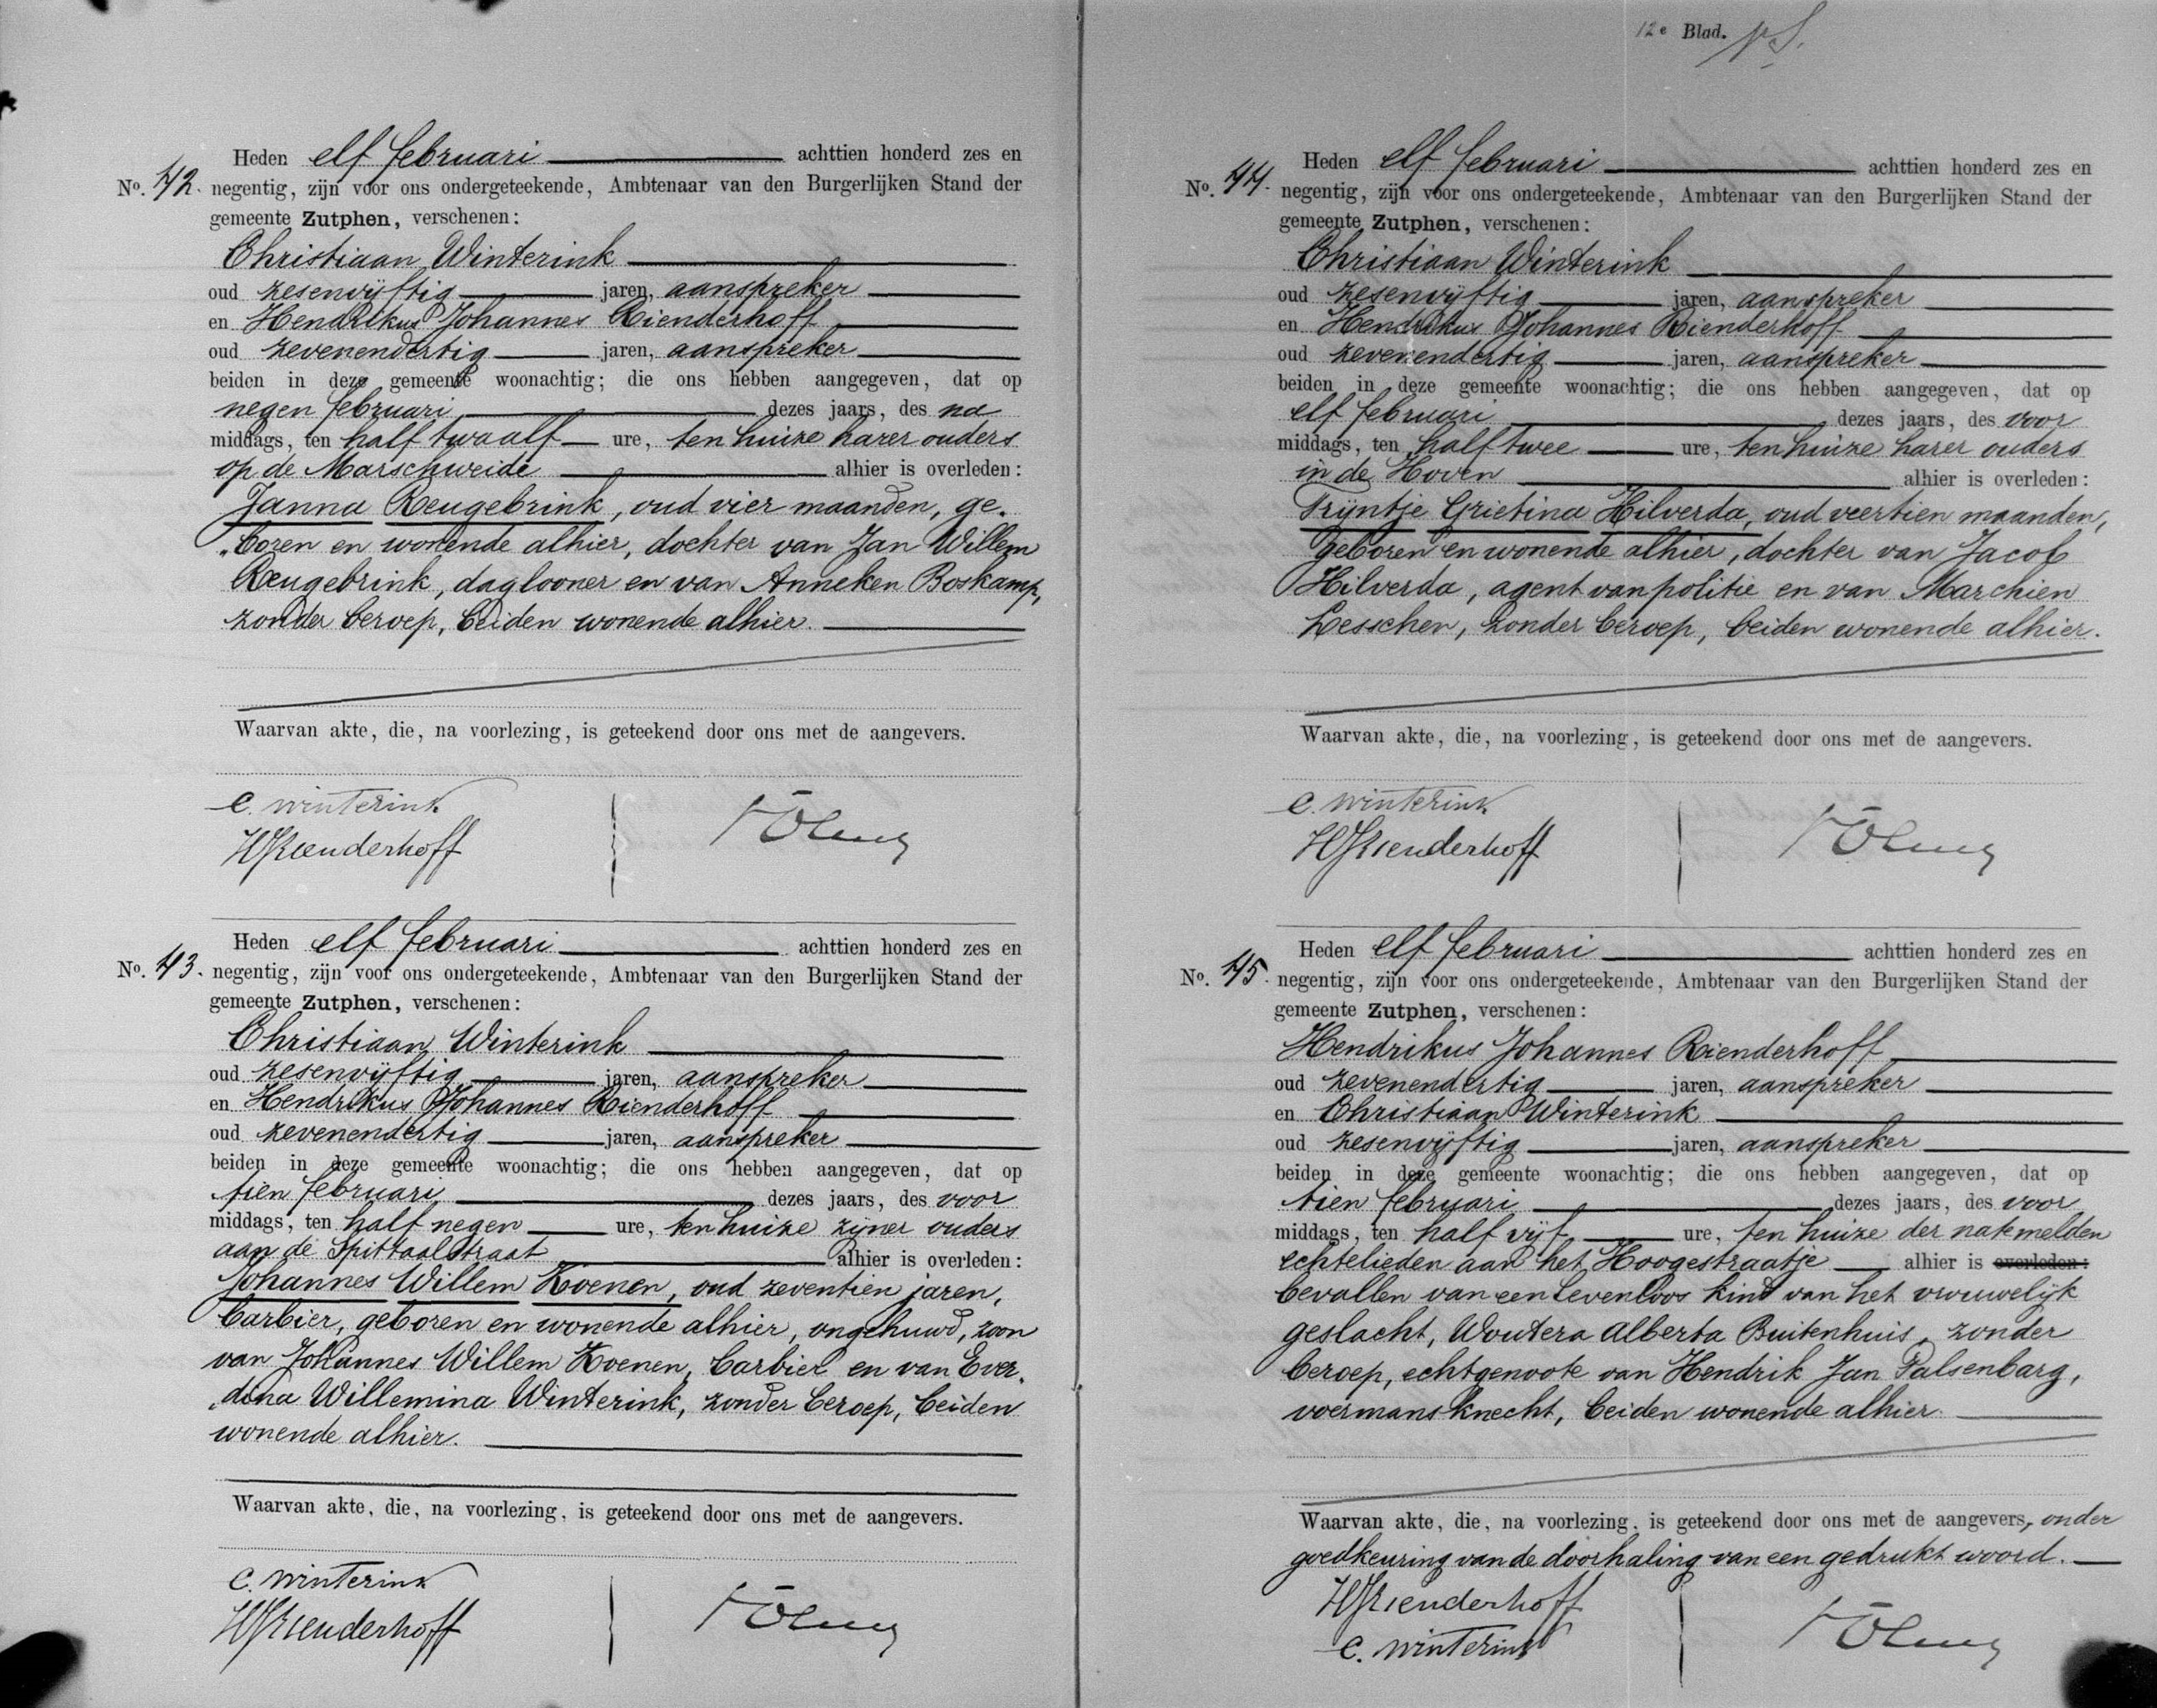 Heden elf februari achttien honderd zes en
No. 42. negentig, zijn voor ons ondergeteekende, Ambtenaar van den Burgerlijken Stand der
gemeente Zutphen, verschenen:
Christiaan Winterink
oud zesenvijftig jaren, aanspreker
en Hendrikus Johannes Rienderhoff
oud zevenendertig jaren, aanspreker
beiden in deze gemeente woonachtig; die ons hebben aangegeven, dat op
negen februari dezes jaars, des na
middags, ten half twaalf ure, ten huize harer ouders
op de Marschweide alhier is overleden:
Janna Reugebrink, oud vier maanden, ge-
boren en wonende alhier, dochter van Jan Willem
Reugebrink, daglooner en van Anneken Boskamp,
zonder beroep, beiden wonende alhier.
Waarvan akte, die, na voorlezing, is geteekend door ons met de aangevers.
C. Winterink
HJRienderhoff
Heden elf februari achttien honderd zes en
No. 43. negentig, zijn voor ons ondergeteekende, Ambtenaar van den Burgerlijken Stand der
gemeente Zutphen, verschenen:
Christiaan Winterink
oud zesenvijftig jaren, aanspreker
en Hendrikus Johannes Rienderhoff
oud zevenendertig jaren, aanspreker
beiden in deze gemeente woonachtig; die ons hebben aangegeven, dat op
tien februari dezes jaars, des voor
middags, ten half negen ure, ten huize zijner ouders
aan de Spittaalstraat alhier is overleden:
Johannes Willem Koenen, oud zeventien jaren,
barbier, geboren en wonende alhier, ongehuwd, zoon
van Johannes Willem Koenen, barbier en van Ever-
dina Willemina Winterink, zonder beroep, beiden
wonende alhier.
Waarvan akte, die, na voorlezing, is geteekend door ons met de aangevers.
C. Winterink
HJRienderhoff
12e Blad.
Heden elf februari achttien honderd zes en
No. 44. negentig, zijn voor ons ondergeteekende, Ambtenaar van den Burgerlijken Stand der
gemeente Zutphen, verschenen:
Christiaan Winterink
oud zesenvijftig jaren, aanspreker
en Hendrikus Johannes Rienderhoff
oud zevenendertig jaren, aanspreker
beiden in deze gemeente woonachtig; die ons hebben aangegeven, dat op
elf februari dezes jaars, des voor
middags, ten half twee ure, ten huize harer ouders
in de Hoven alhier is overleden:
Trijntje Grietina Hilverda, oud veertien maanden,
geboren en wonende alhier, dochter van Jacob
Hilverda, agent van politie en van Marchien
Lesschen, zonder beroep, beiden wonende alhier.
Waarvan akte, die, na voorlezing, is geteekend door ons met de aangevers.
C. Winterink
HJRienderhoff
Heden elf februari achttien honderd zes en
No. 45. negentig, zijn voor ons ondergeteekende, Ambtenaar van den Burgerlijken Stand der
gemeente Zutphen, verschenen:
Hendrikus Johannes Rienderhoff
oud zevenendertig jaren, aanspreker
en Christiaan Winterink
oud zesenvijftig jaren, aanspreker
beiden in deze gemeente woonachtig; die ons hebben aangegeven, dat op
tien februari dezes jaars, des voor
middags, ten half vijf ure, ten huize der natemelden
echtelieden aan het Hoogestraatje alhier is overleden:
bevallen van een levenloos kind van het vrouwelijk
geslacht, Woutera Alberta Buitenhuis, zonder
beroep, echtgenoote van Hendrik Jan Palsenbarg,
voermansknecht, beiden wonende alhier.
Waarvan akte, die, na voorlezing, is geteekend door ons met de aangevers, onder
goedkeuring van de doorhaling van een gedrukt woord.
HJRienderhoff
C. Winterink